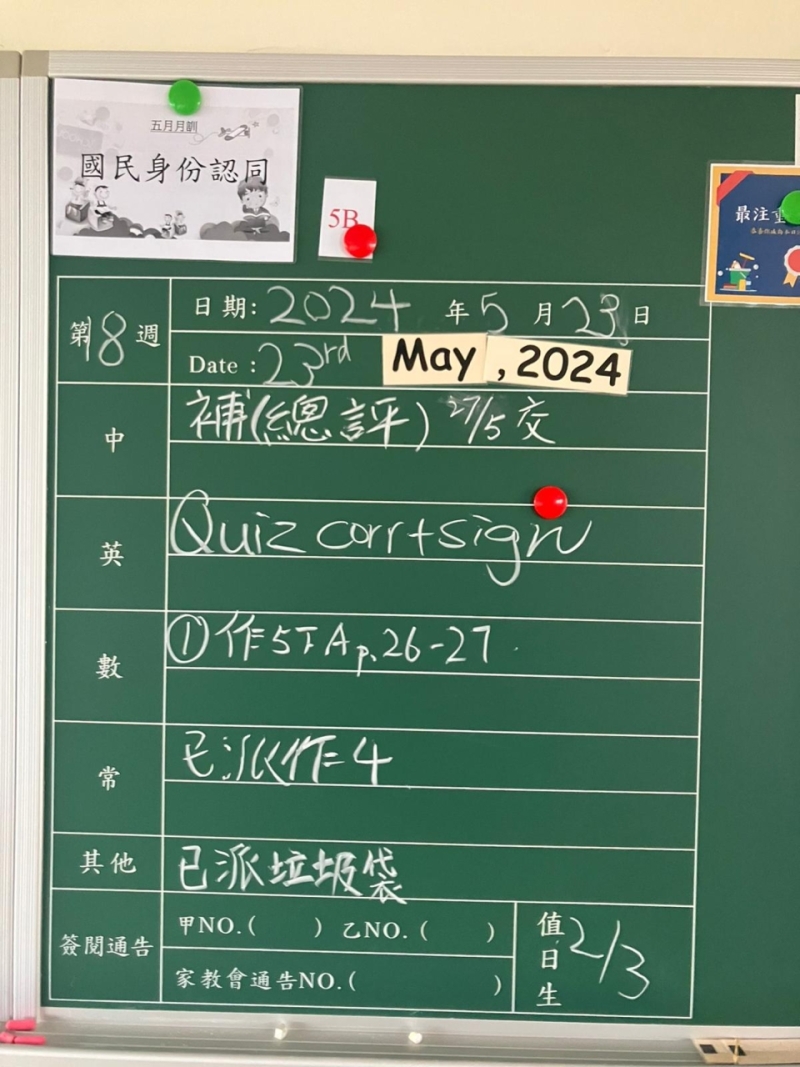 五月月訓
國民身份認同
5B
最注重
第18週
日期: 2024 年 5 月 23 日
Date : 23rd May , 2024
中
補(總評) 27/5 交
英
Quiz corr+sign
數
① 作5下A p.26-27
常
已派作4
其他
已派垃圾袋
簽閱通告
甲NO.( ) 乙NO.( )
家教會通告NO.( )
值日生
2/3